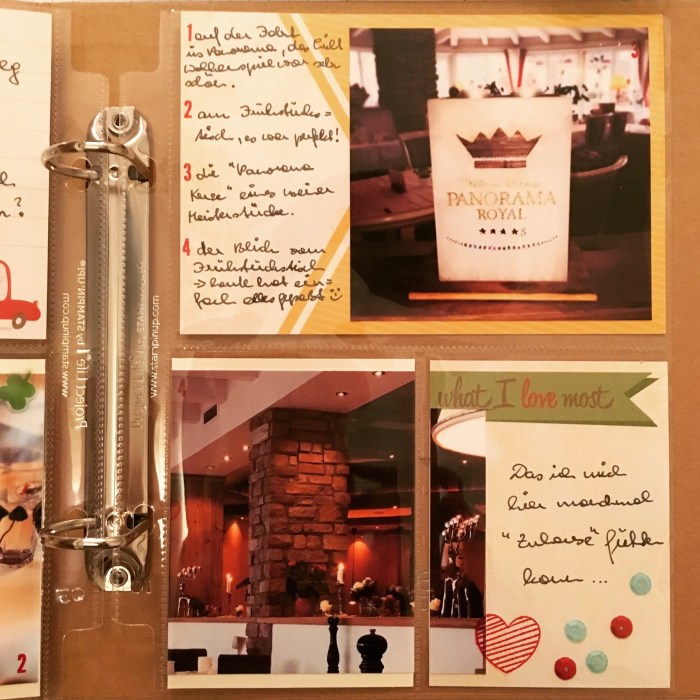 eg
?
2
www.stampinup.com
Project Life® by STAMPIN' UP!®
www.stampinup.com
1 auf der Fahrt
ins Panorama, das Licht
Wolkenspiel war sehr
schön.
2 am Frühstücks=
tisch, es war perfekt!
3 die "Panorama
Kerze" eines meiner
Meisterstücke.
4 der Blick vom
Frühstückstisch
→ heute hat ein=
fach alles gepasst ☺
3
PANORAMA
ROYAL
★★★★S
4
what I love most
Das ich mich
hier manchmal
"Zuhause" fühlen
kann ...